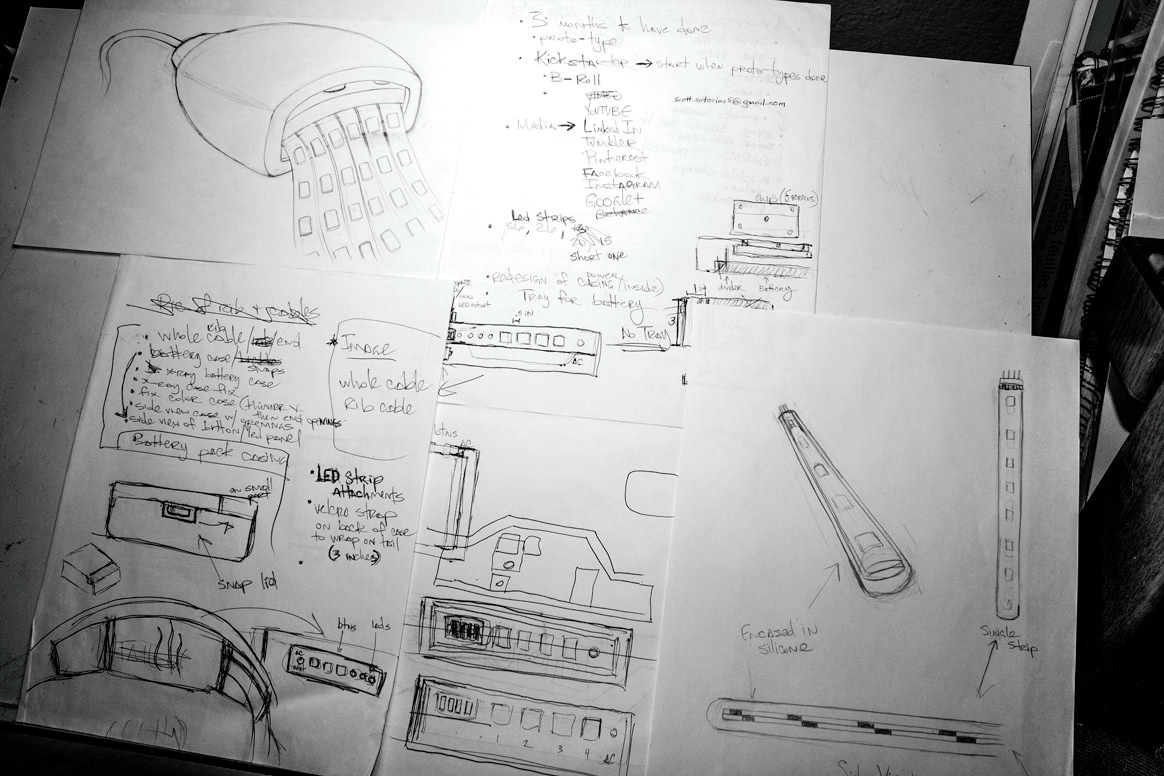 3 months to have done
proto-type
Kickstarter → start when proto-types done
B-Roll
YouTube
Media → Linked In
Tumbler
Pinterest
Facebook
Instagram
Google+
Behance
Led strips
36, 26,
20, 15
short one
Redesign of casing (inside)
power
Tray for battery
.5 in
No Tray
AC
chip
divider
Battery
whole cable/ end
rib
battery case/
snaps
x-ray battery case
x-ray case fix
fix color case (thinner x
side view case w/ openings then end openings
side view of button/led panel
Battery pack casing
Image
whole cable
Rib cable
on small part
snap lid
LED Strip
Attachments
velcro strap
on back of case
to wrap on tail
(3 inches)
btns leds
AC
btns
AC
1 2 3 4 AC
Encased in
silicone
Single
strip
Side View